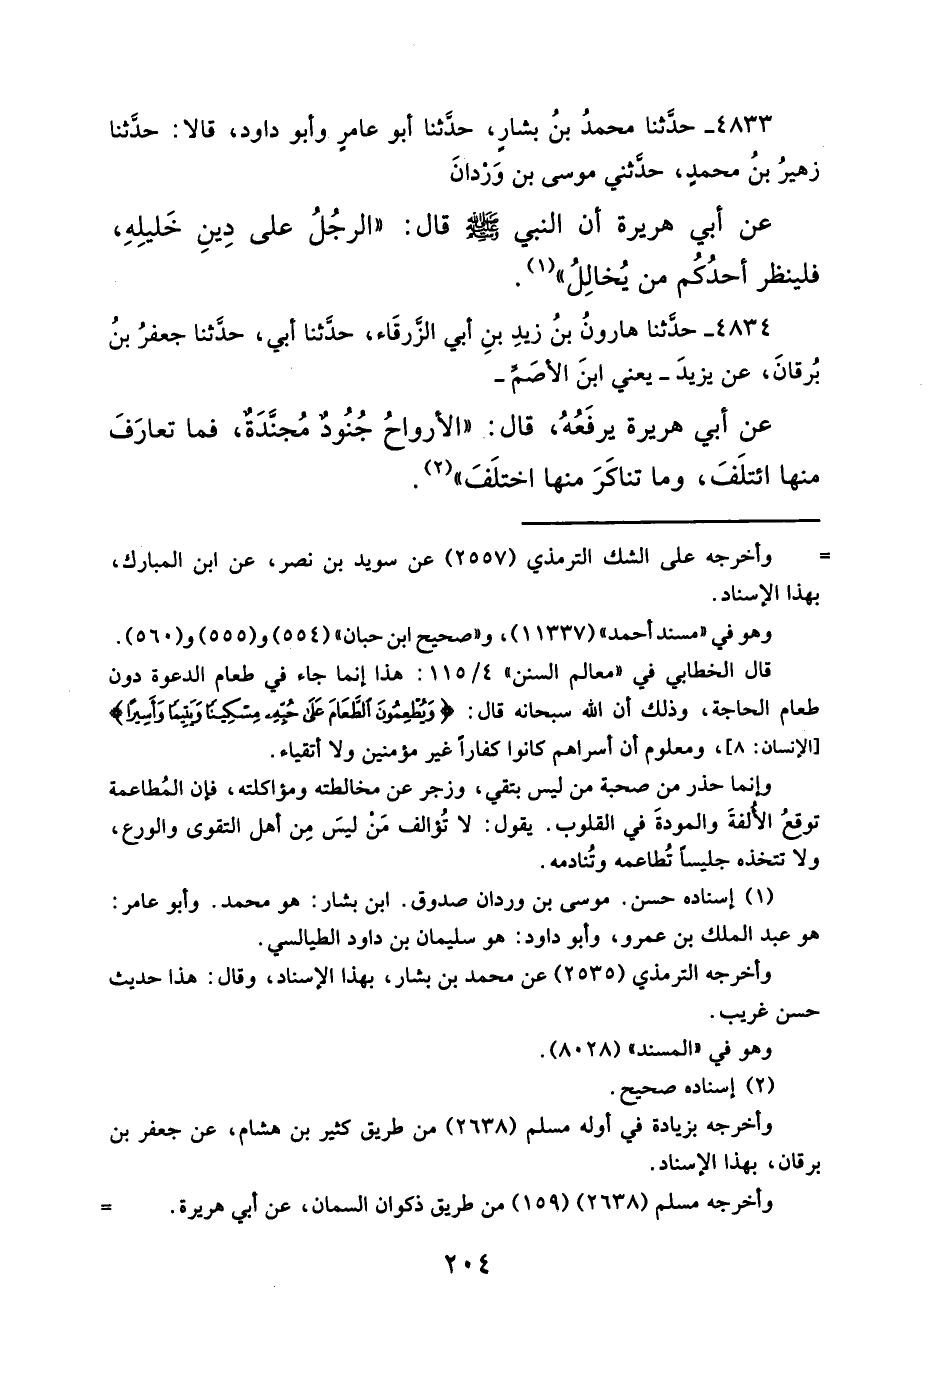 ٤٨٣٣ـ حدَّثنا محمدُ بنُ بشارٍ، حدَّثنا أبو عامرٍ وأبو داود، قالا: حدَّثنا
زهيرُ بنُ محمدٍ، حدَّثني موسى بن وَرْدانَ
عن أبي هريرة أن النبي ﷺ قال: «الرجُلُ على دِينِ خَليلِهِ،
فلينظر أحدُكُم من يُخالِلُ»(١).
٤٨٣٤ـ حدَّثنا هارونُ بنُ زيدِ بنِ أبي الزَّرقَاء، حدَّثنا أبي، حدَّثنا جعفرُ بنُ
بُرقانَ، عن يزيدَ ـ يعني ابنَ الأصَمِّ ـ
عن أبي هريرة يرفَعُهُ، قال: «الأرواحُ جُنُودٌ مُجنَّدَةٌ، فما تعارَفَ
منها ائتلَفَ، وما تناكَرَ منها اختلَفَ»(٢).
= وأخرجه على الشك الترمذي (٢٥٥٧) عن سويد بن نصر، عن ابن المبارك،
بهذا الإسناد.
وهو في «مسند أحمد» (١١٣٣٧)، و«صحيح ابن حبان» (٥٥٤) و(٥٥٥) و(٥٦٠).
قال الخطابي في «معالم السنن» ٤/ ١١٥: هذا إنما جاء في طعام الدعوة دون
طعام الحاجة، وذلك أن الله سبحانه قال: ﴿وَيُطْعِمُونَ ٱلطَّعَامَ عَلَىٰ حُبِّهِۦ مِسْكِينًا وَيَتِيمًا وَأَسِيرًا﴾
[الإنسان: ٨]، ومعلوم أن أسراهم كانوا كفاراً غير مؤمنين ولا أتقياء.
وإنما حذر من صحبة من ليس بتقي، وزجر عن مخالطته ومؤاكلته، فإن المُطاعمة
توقعُ الأُلفةَ والمودةَ في القلوب. يقول: لا تُؤالف مَنْ ليسَ مِن أهل التقوى والورع،
ولا تتخذه جليساً تُطاعمه وتُنادمه.
(١) إسناده حسن. موسى بن وردان صدوق. ابن بشار: هو محمد. وأبو عامر:
هو عبد الملك بن عمرو، وأبو داود: هو سليمان بن داود الطيالسي.
وأخرجه الترمذي (٢٥٣٥) عن محمد بن بشار، بهذا الإسناد، وقال: هذا حديث
حسن غريب.
وهو في «المسند» (٨٠٢٨).
(٢) إسناده صحيح.
وأخرجه بزيادة في أوله مسلم (٢٦٣٨) من طريق كثير بن هشام، عن جعفر بن
برقان، بهذا الإسناد.
وأخرجه مسلم (٢٦٣٨) (١٥٩) من طريق ذكوان السمان، عن أبي هريرة. =
٢٠٤